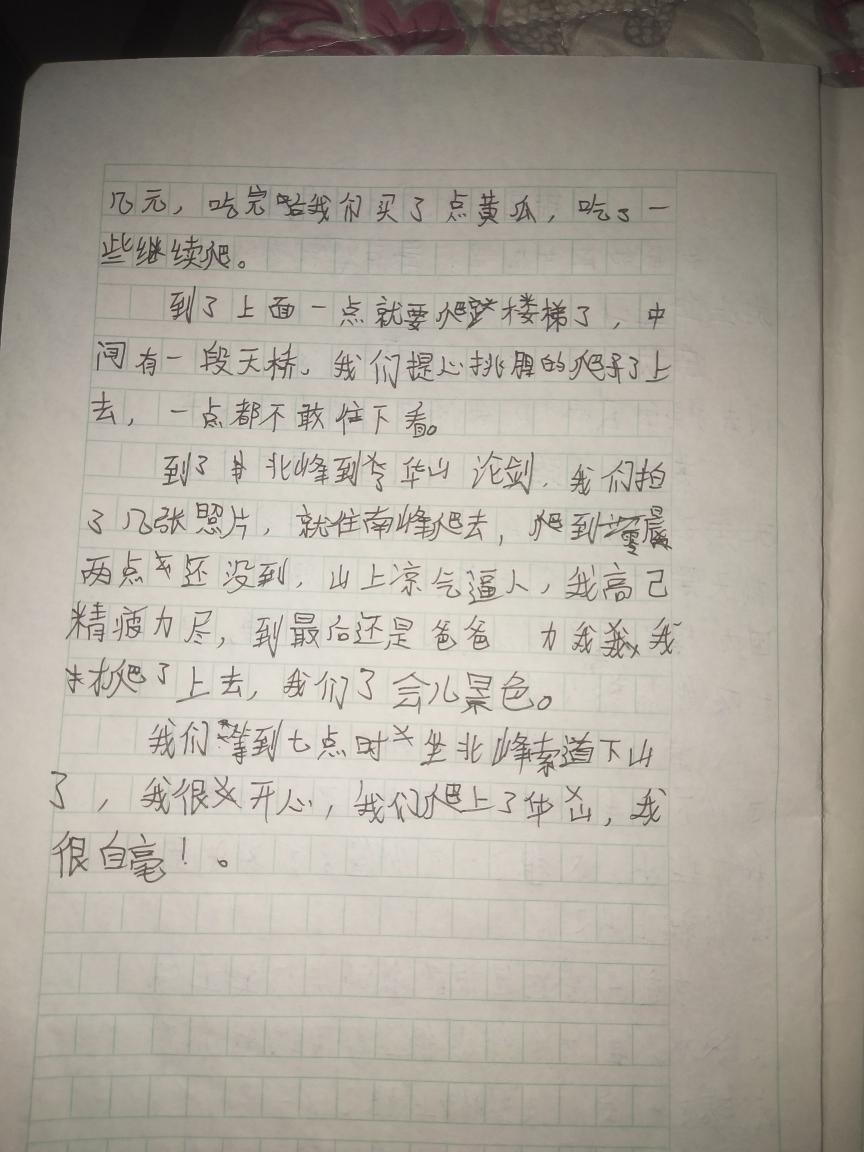 几元，吃完我们买了点黄瓜，吃了一
些继续爬。
到了上面一点就要爬楼梯了，中
间有一段天桥。我们提心挑胆的爬了上
去，一点都不敢往下看。
到了北峰到华山论剑，我们拍
了几张照片，就往南峰爬去，爬到零晨
两点还没到，山上凉气逼人，我高己
精疲力尽，到最后还是爸爸 力我我
才爬了上去，我们了会儿景色。
我们等到七点时坐北峰索道下山
了，我很开心，我们爬上了华山，我
很自毫！。